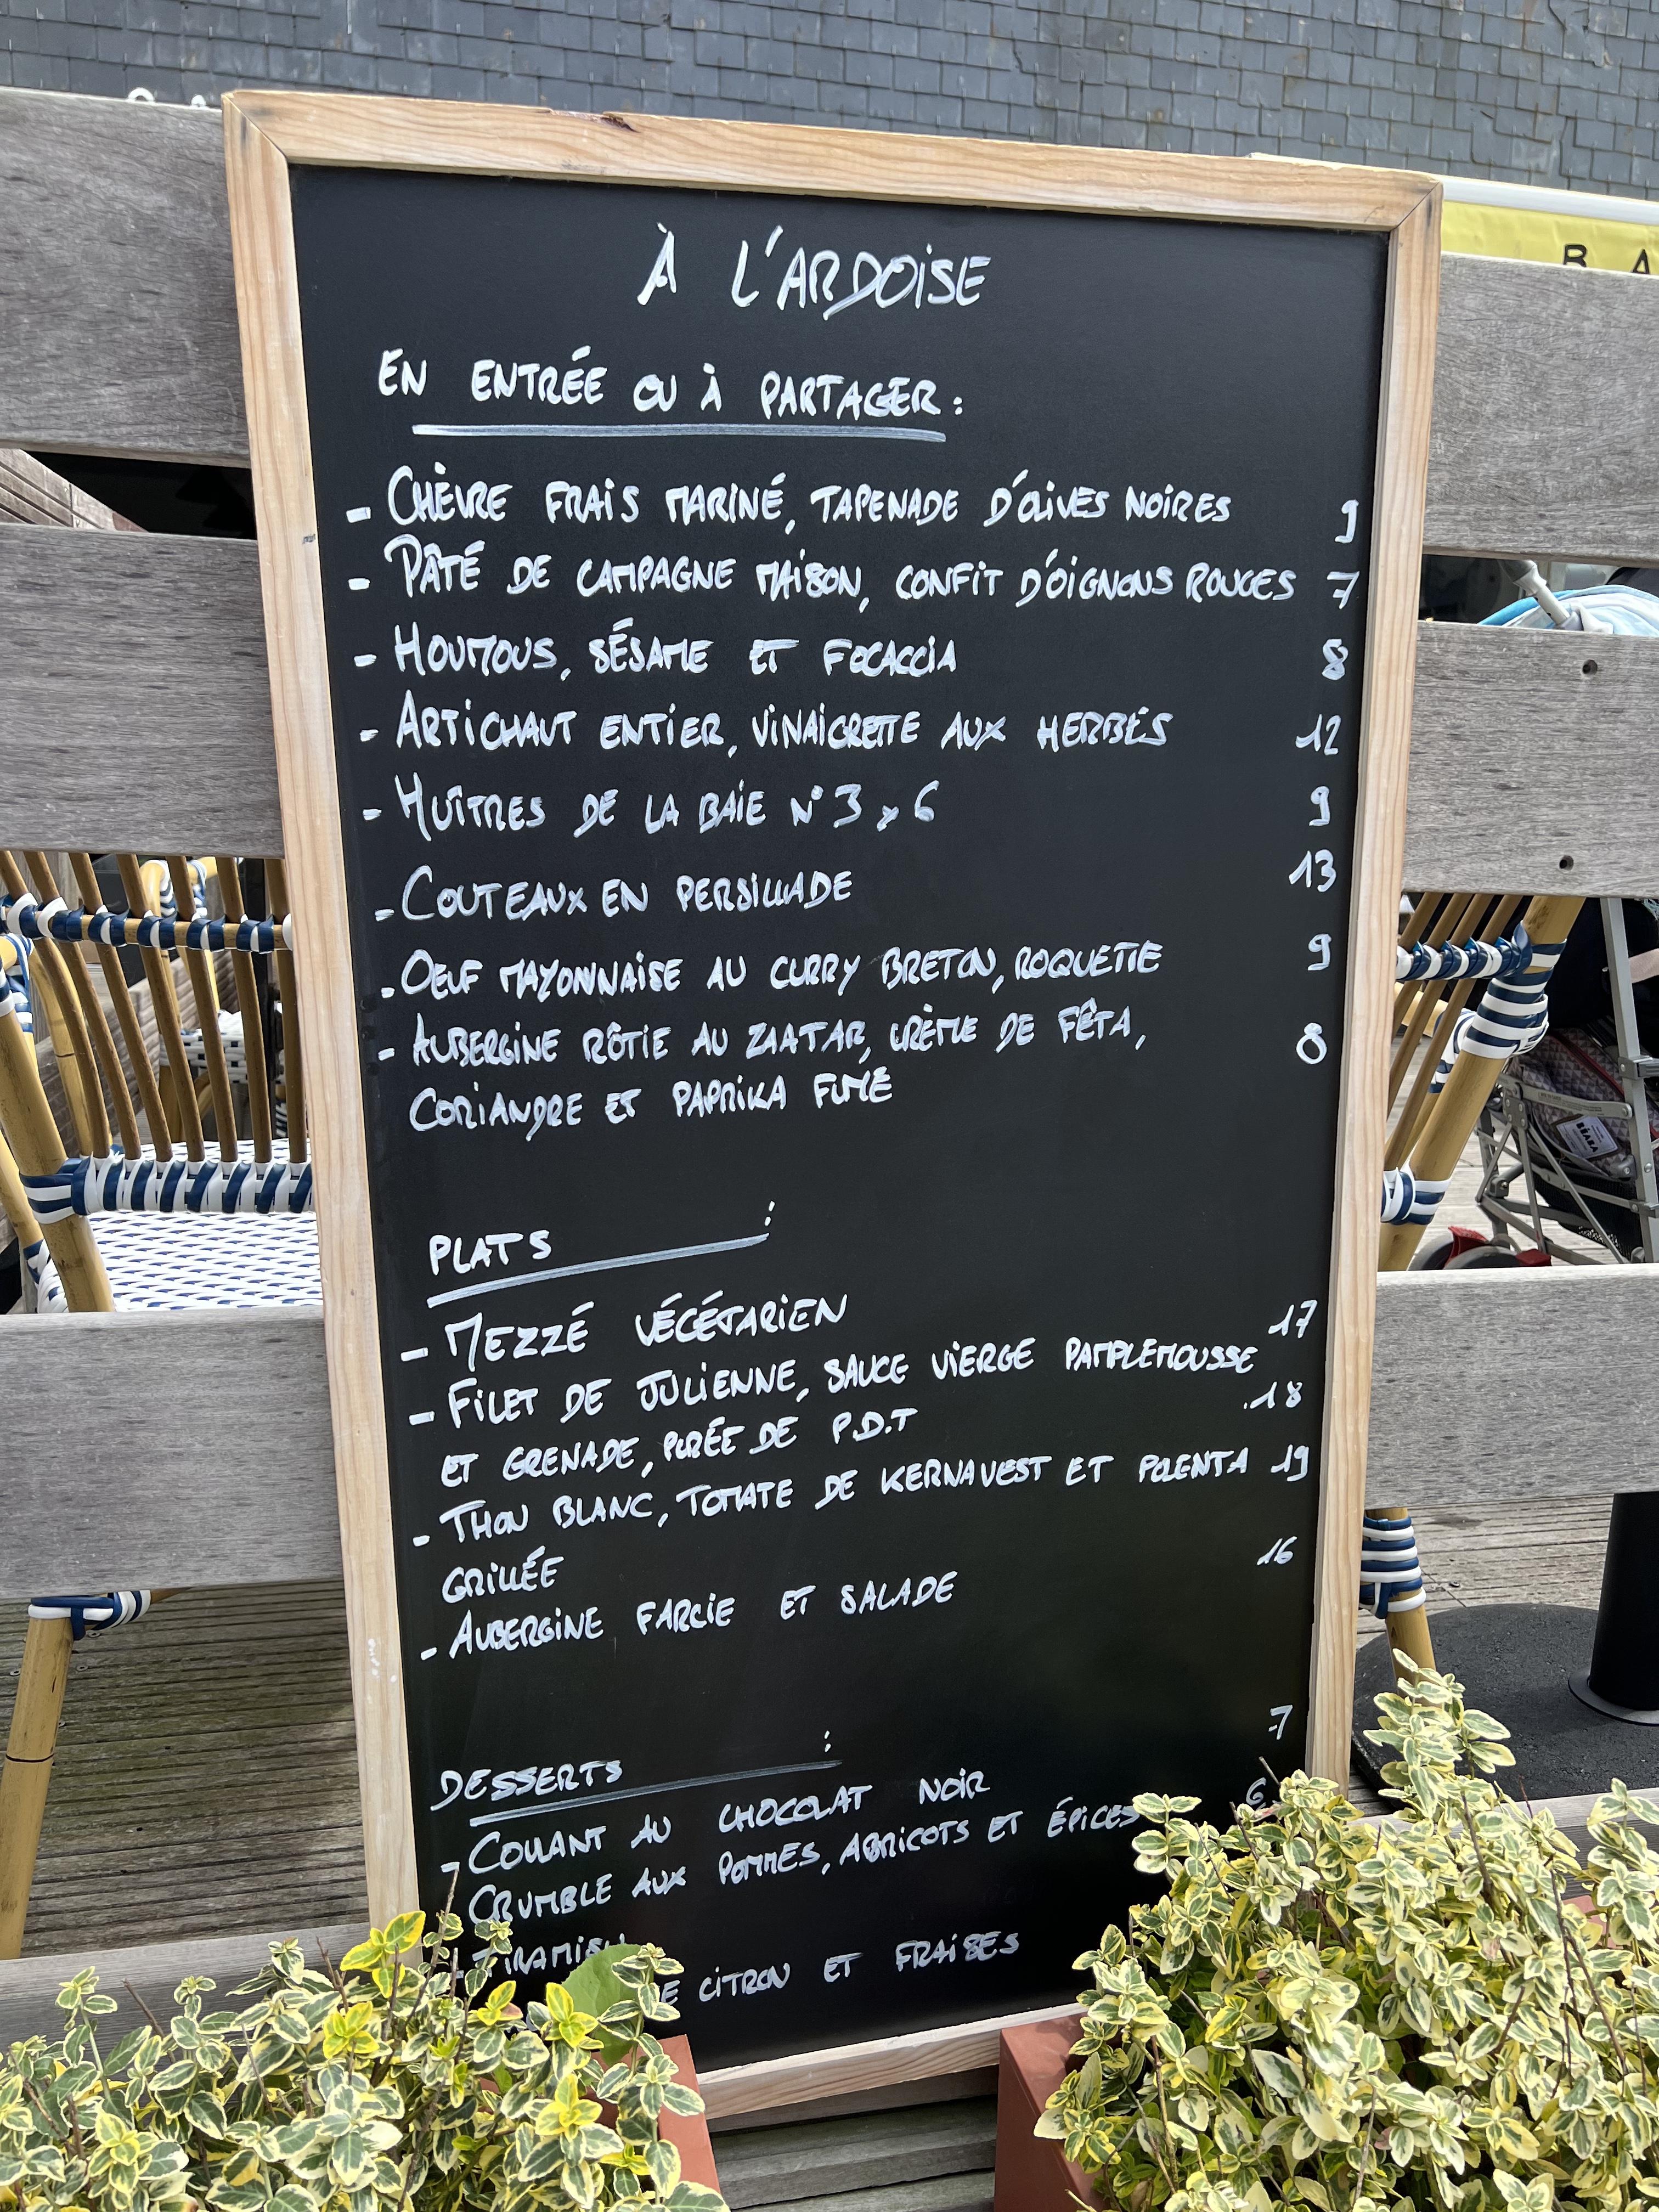 B A
À L'ARDOISE
EN ENTRÉE OU À PARTAGER :
- CHÈVRE FRAIS MARINÉ, TAPENADE D'OLIVES NOIRES 9
- PÂTÉ DE CAMPAGNE MAISON, CONFIT D'OIGNONS ROUGES 7
- HOUMOUS, SÉSAME ET FOCACCIA 8
- ARTICHAUT ENTIER, VINAIGRETTE AUX HERBES 12
- HUÎTRES DE LA BAIE N°3 x 6 9
- COUTEAUX EN PERSILLADE 13
- OEUF MAYONNAISE AU CURRY BRETON, ROQUETTE 9
- AUBERGINE RÔTIE AU ZAATAR, CRÈME DE FÊTA, 8
CORIANDRE ET PAPRIKA FUMÉ
PLATS :
- MEZZÉ VÉGÉTARIEN 17
- FILET DE JULIENNE, SAUCE VIERGE PAMPLEMOUSSE
ET GRENADE, PURÉE DE P.D.T 18
- THON BLANC, TOMATE DE KERNAVEST ET POLENTA 19
GRILLÉE
- AUBERGINE FARCIE ET SALADE 16
DESSERTS :
- COULANT AU CHOCOLAT NOIR 7
- CRUMBLE AUX POMMES, ABRICOTS ET ÉPICES 6
- TIRAMISU
CITRON ET FRAISES
BÉABA